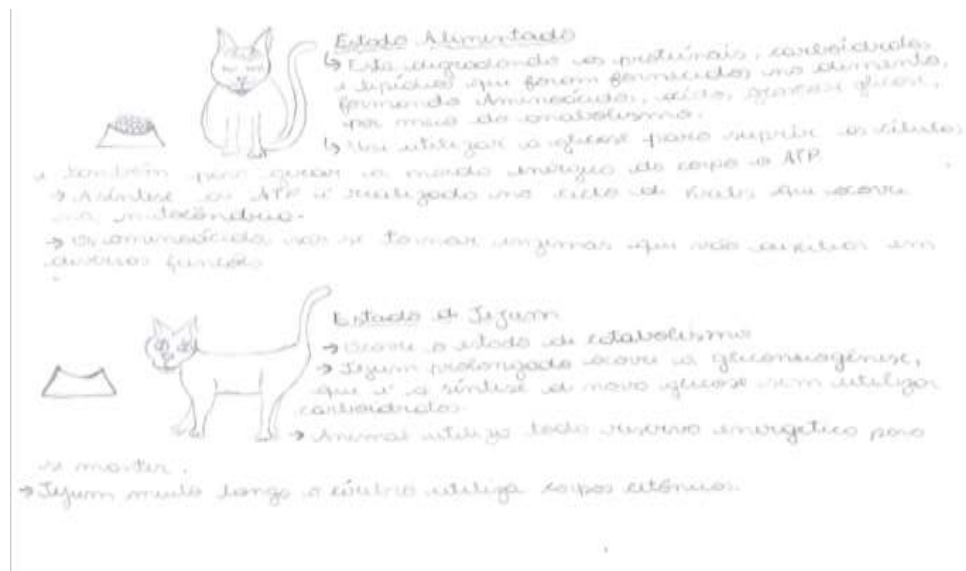 Estado Alimentado
↳ Esta degradando as proteínais, carboidratos
e lipídios que foram fornecidos no alimento,
formando Aminoácidos, acidos graxos e glicose,
por meio do anabolismo.
↳ Vai utilizar a glicose para suprir as células
e também para gerar a moeda energica do corpo o ATP
→ A síntese de ATP é realizado no ciclo de Krebs que ocorre
na mitocôndria.
→ Os aminoácidos vão se tornar enzimas que vão auxiliar em
diversas funções
Estado de Jejum
→ Ocorre o estado de catabolismo
→ Jejum prolongado ocorre a gliconeogênese,
que é a síntese de nova glicose sem utilizar
carboidratos.
→ Animal utiliza toda reserva energetica para
se manter.
→ Jejum muito longo o cérebro utiliza corpos cetônicos.